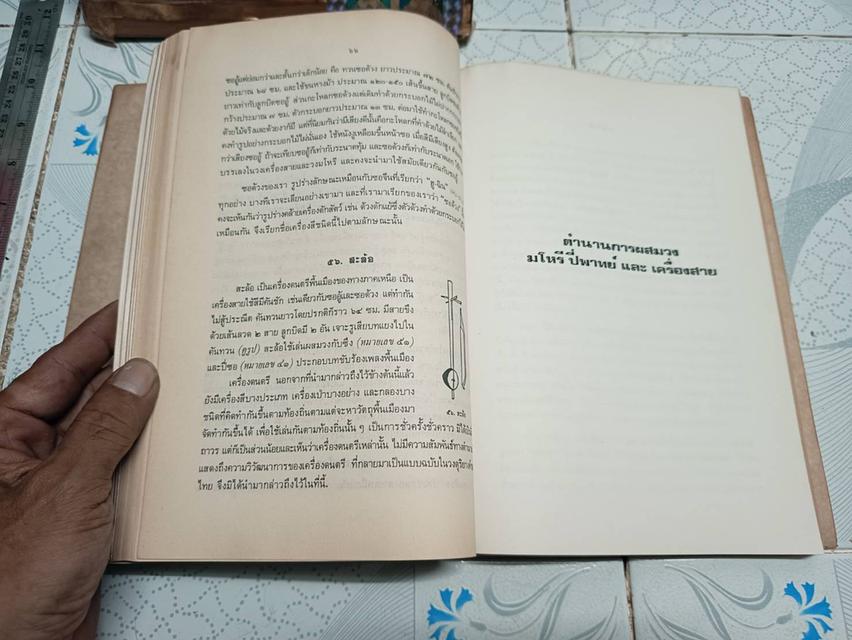 ๖๖
ซออู้แต่ย่อมกว่าและสั้นกว่าเล็กน้อย คือ ทวนซอด้วง ยาวประมาณ ๗๒ ซม.
ประมาณ ๖๘ ซม. และใช้ขนหางม้า ประมาณ ๑๒๐-๑๕๐ เส้นขึ้นสาย
ยาวเท่ากับลูกบิดซออู้ ส่วนกะโหลกซอด้วงแต่เดิมทำด้วยกระบอกไม้ไผ่
กว้างประมาณ ๗ ซม. ตัวกระบอกยาวประมาณ ๑๓ ซม. ต่อมาใช้ทำกะโหลก
ด้วยไม้จริงและด้วยงาก็มี แต่ที่นิยมกันว่ามีเสียงดีนั้นคือกะโหลกที่ทำด้วยไม้
คงทำรูปอย่างกระบอกไม้ไผ่นั่นเอง ใช้หนังงูเหลือมขึ้นหน้าซอ เมื่อสีมีเสียงสูง
กว่าเสียงซออู้ ถ้าจะเทียบซออู้ก็เท่ากับระนาดทุ้ม และซอด้วงก็เท่ากับระนาดเอก
บรรเลงในวงเครื่องสายและวงมโหรี และคงจะนำมาใช้สมัยเดียวกันกับซออู้
ซอด้วงของเรา รูปร่างลักษณะเหมือนกับซอจีนที่เรียกว่า "ฮู-ฉิน"
ทุกอย่าง บางทีเราจะเลียนอย่างเขามา และที่เรามาเรียกของเราว่า "ซอด้วง"
คงจะเห็นกันว่ารูปร่างคล้ายเครื่องดักสัตว์ เช่น ด้วงดักแย้ซึ่งตัวด้วงทำด้วยกระบอก
เหมือนกัน จึงเรียกชื่อเครื่องสีชนิดนี้ไปตามลักษณะนั้น
๕๖. สะล้อ
สะล้อ เป็นเครื่องดนตรีพื้นเมืองของทางภาคเหนือ เป็น
เครื่องสายใช้สีมีคันชัก เช่นเดียวกับซออู้และซอด้วง แต่ทำกัน
ไม่สู้ประณีต คันทวนยาวโดยปรกติก็ราว ๖๔ ซม. มีสายขึง
ด้วยเส้นลวด ๒ สาย ลูกบิดมี ๒ อัน เจาะรูเสียบทแยงไปใน
คันทวน (ดูรูป) สะล้อใช้เล่นผสมวงกับซึง (หมายเลข ๕๑)
และปี่ซอ (หมายเลข ๔๑) ประกอบบทขับร้องเพลงพื้นเมือง
เครื่องดนตรี นอกจากที่นำมากล่าวถึงไว้ข้างต้นนี้แล้ว
ยังมีเครื่องสีบางประเภท เครื่องเป่าบางอย่าง และกลองบาง
ชนิดที่คิดทำกันขึ้นตามท้องถิ่นตามแต่จะหาวัตถุพื้นเมืองมา
จัดทำกันขึ้นได้ เพื่อใช้เล่นกันตามท้องถิ่นนั้น ๆ เป็นการชั่วครั้งชั่วคราว
ถาวร แต่ก็เป็นส่วนน้อยและเห็นว่าเครื่องดนตรีเหล่านั้น ไม่มีความสัมพันธ์
แสดงถึงความวิวัฒนาการของเครื่องดนตรี ที่กลายมาเป็นแบบฉบับในวงดุริยางค์
ไทย จึงมิได้นำมากล่าวถึงไว้ในที่นี้.
๕๖. สะล้อ
ตำนานการผสมวง
มโหรี ปี่พาทย์ และ เครื่องสาย